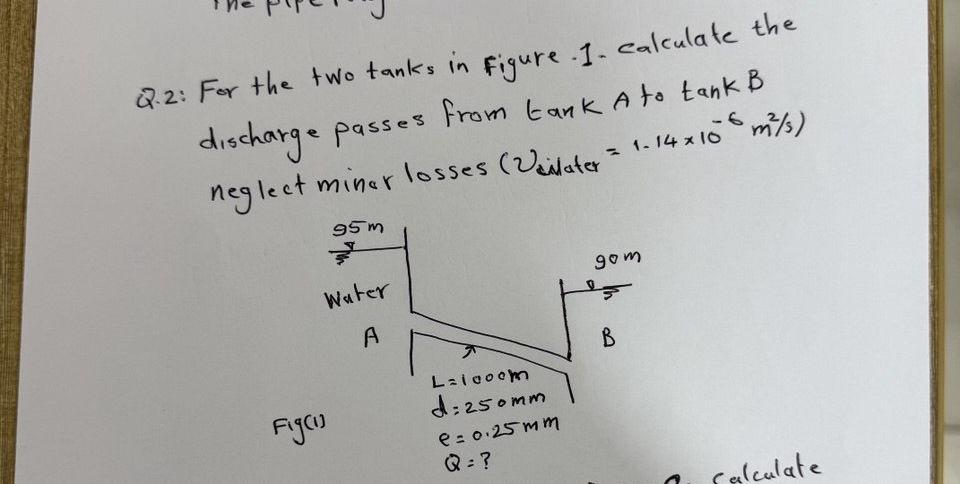 The pipe
Q.2: For the two tanks in Figure .1- calculate the
discharge passes from tank A to tank B
neglect minor losses (υwater = 1.14 x 10⁻⁶ m²/s)
95m
90m
Water
A
B
L=1000m
d=250mm
e=0.25mm
Q=?
Fig(1)
Calculate